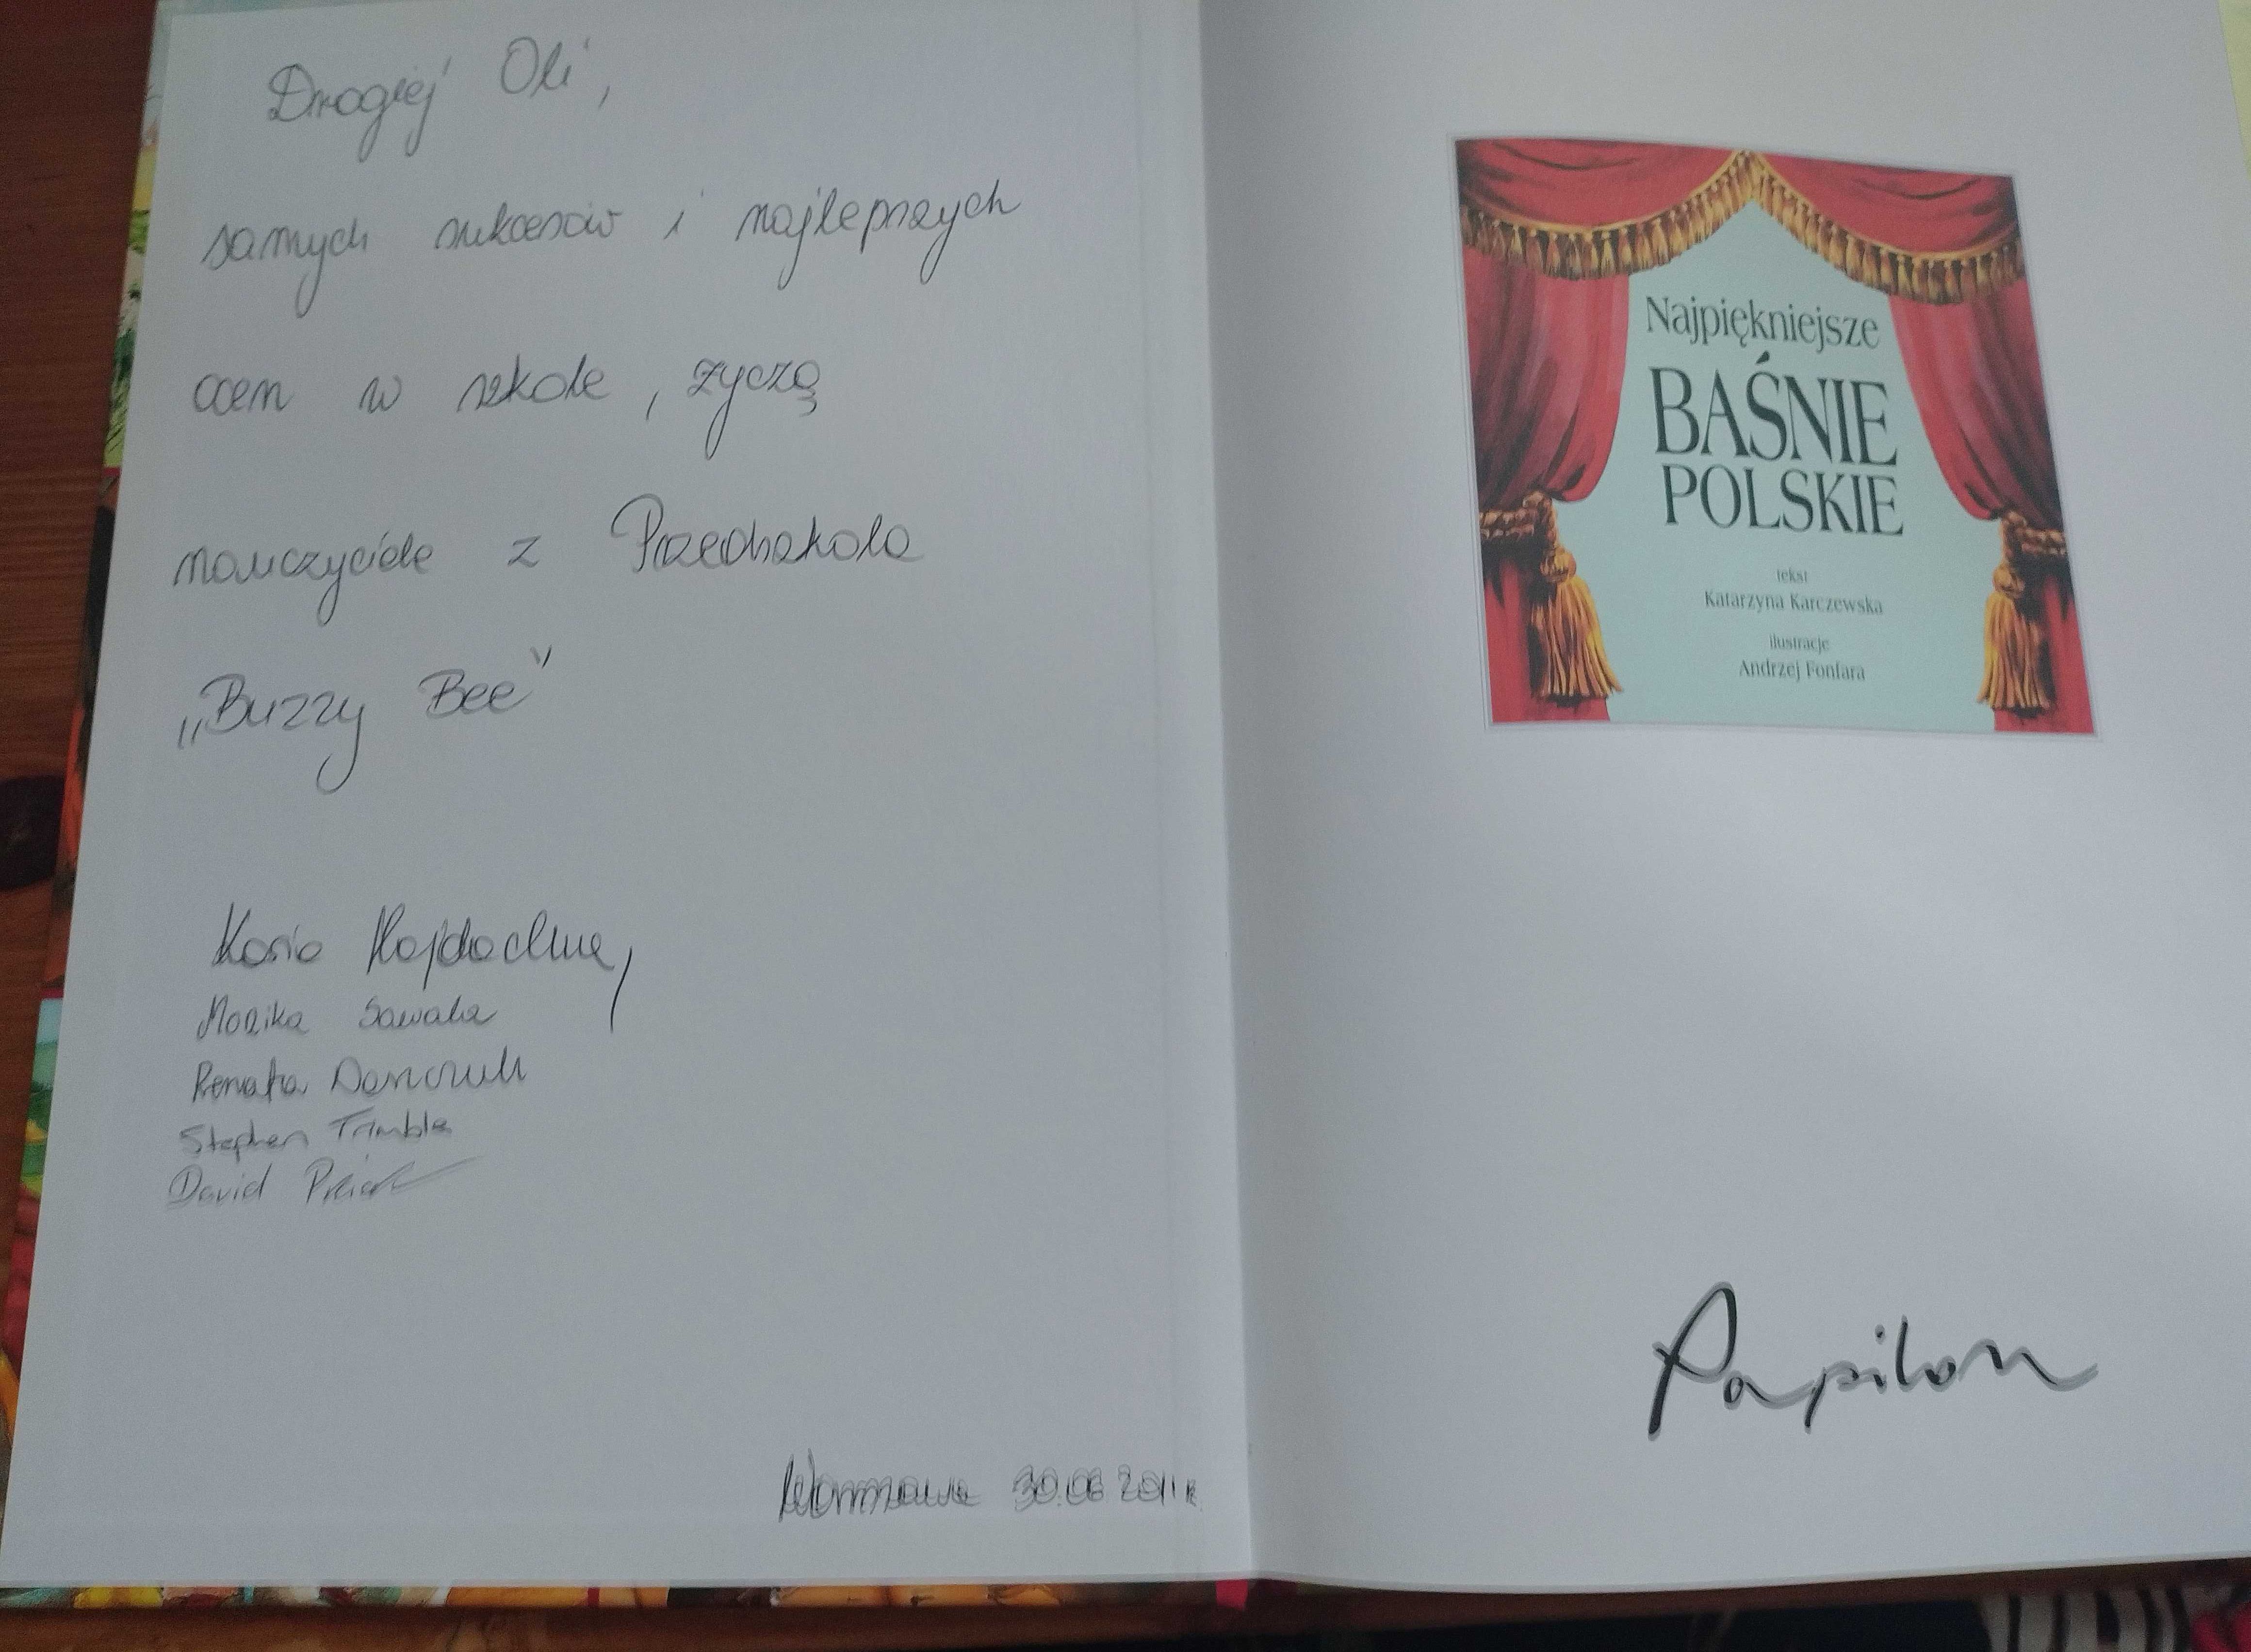 Drogiej Oli,
samych sukcesów i najlepszych
ocen w szkole, życzą
nauczyciele z Przedszkola
„Buzzy Bee”
Kasia
Monika Sawala
Renata
Stephen Trimble
David
Warszawa 30.06.2011 r.
Najpiękniejsze
BAŚNIE
POLSKIE
tekst
Katarzyna Karczewska
ilustracje
Andrzej Fonfara
Papilon